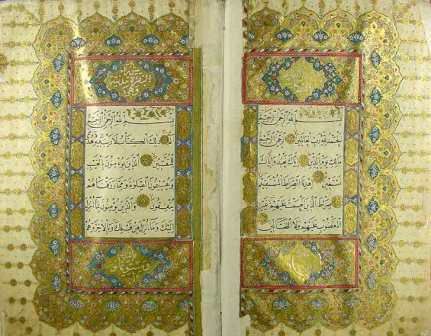 بِسْمِ اللَّهِ الرَّحْمَنِ الرَّحِيمِ
الْحَمْدُ لِلَّهِ رَبِّ الْعَالَمِينَ الرَّحْمَنِ الرَّحِيمِ
مَالِكِ يَوْمِ الدِّينِ إِيَّاكَ نَعْبُدُ وَإِيَّاكَ
نَسْتَعِينُ اهْدِنَا الصِّرَاطَ الْمُسْتَقِيمَ
صِرَاطَ الَّذِينَ أَنْعَمْتَ عَلَيْهِمْ غَيْرِ
الْمَغْضُوبِ عَلَيْهِمْ وَلَا الضَّالِّينَ
بِسْمِ اللَّهِ الرَّحْمَنِ الرَّحِيمِ
الم ذَلِكَ الْكِتَابُ لَا رَيْبَ فِيهِ هُدًى
لِلْمُتَّقِينَ الَّذِينَ يُؤْمِنُونَ بِالْغَيْبِ
وَيُقِيمُونَ الصَّلَوةَ وَمِمَّا رَزَقْنَاهُمْ
يُنْفِقُونَ وَالَّذِينَ يُؤْمِنُونَ بِمَا أُنْزِلَ
إِلَيْكَ وَمَا أُنْزِلَ مِنْ قَبْلِكَ وَبِالْآخِرَةِ هُمْ